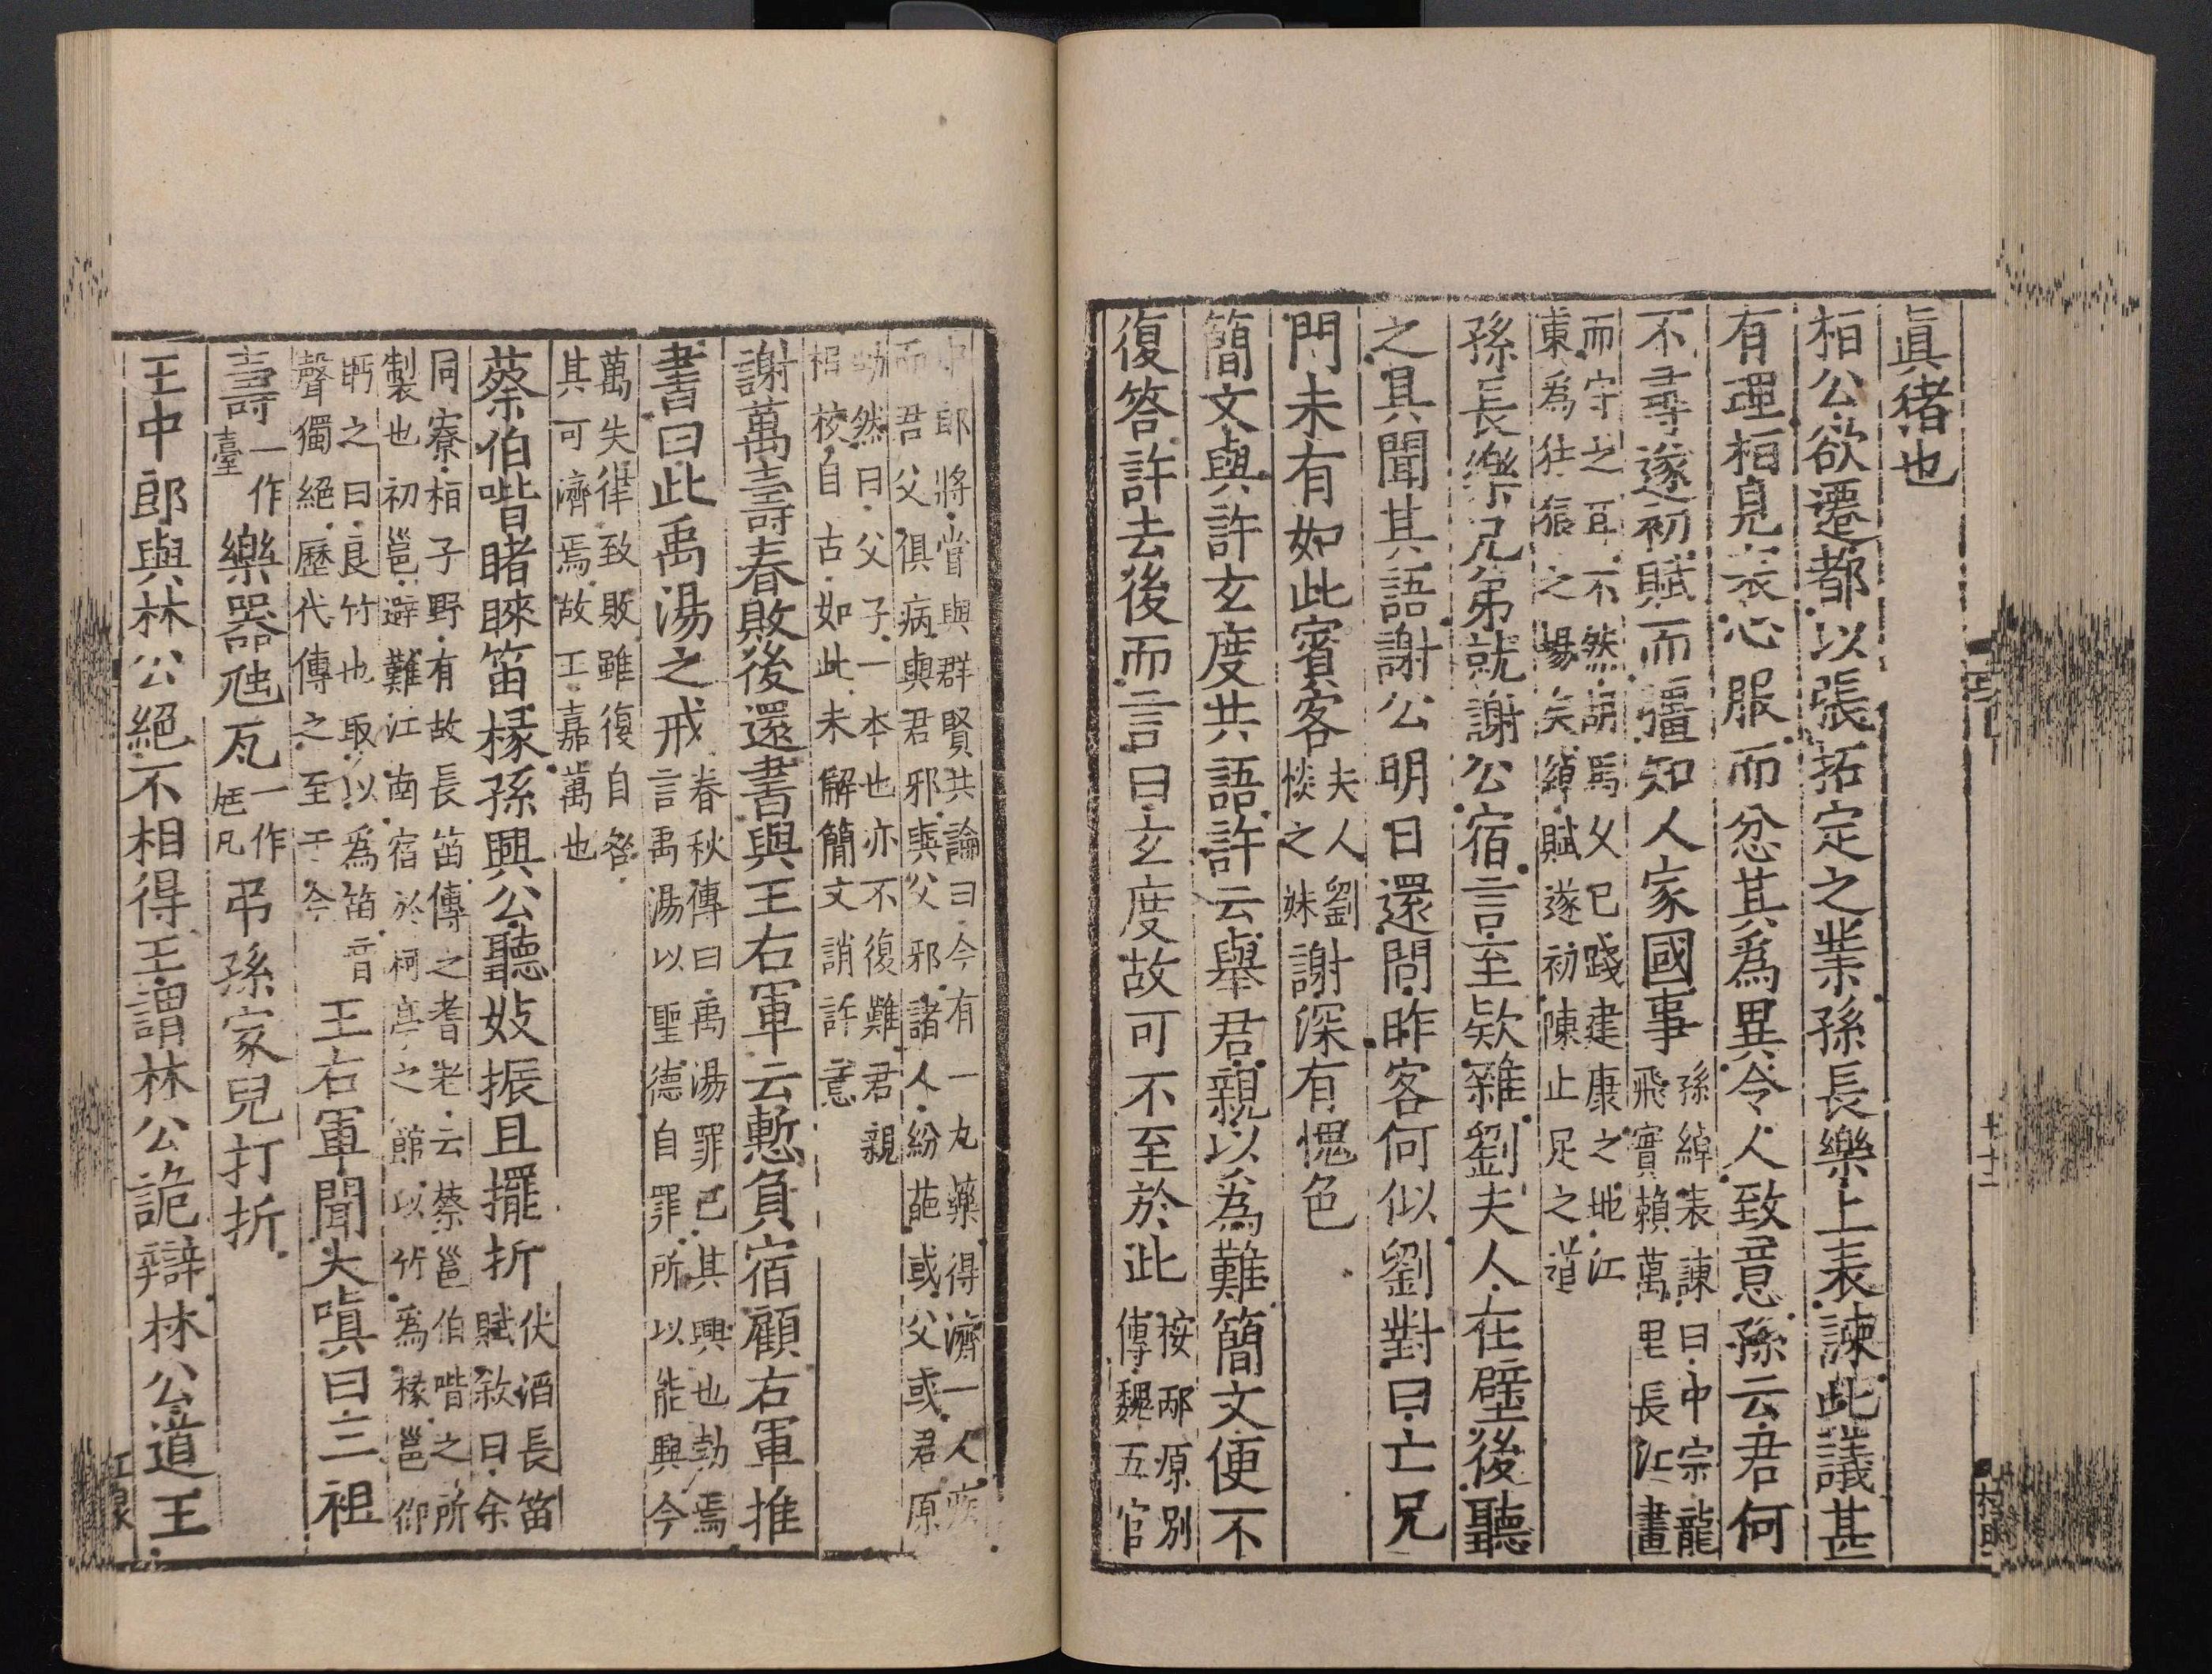 眞猪也
桓公欲遷都以張拓定之業孫長樂上表諫此議甚
有理桓見表心服而忿其爲異令人致意孫云君何
不尋遂初賦而彊知人家國事
孫綽表諫曰中宗龍
飛實賴萬里長江畫
而守之耳不然胡馬乆已踐建康之地江
東爲豺狼之場矣綽賦遂初陳止足之道
孫長樂兄弟就謝公宿言至欵雜劉夫人在壁後聽
之具聞其語謝公明日還問昨客何似劉對曰亡兄
門未有如此賓客
夫人劉
惔之妹
謝深有愧色
簡文與許玄度共語許云舉君親以爲難簡文便不
復答許去後而言曰玄度故可不至於此
桉邴原別
傳魏五官
中郎將嘗與群賢共論曰今有一丸藥得濟一人疾
而君父俱病與君邪與父邪諸人紛葩或父或君原
勃然曰父子一本也亦不復難君親
相校自古如此未解簡文誚許意
謝萬壽春敗後還書與王右軍云慙負宿顧右軍推
書曰此禹湯之戒
春秋傳曰禹湯罪己其興也勃焉
言禹湯以聖德自罪所以能興今
萬失律致敗雖復自咎
其可濟焉故王嘉萬也
蔡伯喈睹睞笛椽孫興公聽妓振且擺折
伏滔長笛
賦敘曰余
同寮桓子野有故長笛傳之耆老云蔡邕伯喈之所
製也初邕避難江南宿於柯亭之館以竹爲椽邕仰
眄之曰良竹也取以爲笛音
聲獨絕歷代傳之至于今
王右軍聞大嗔曰三祖
壽
一作
臺
樂器虺瓦
一作
尫凡
弔孫家兒打折
王中郎與林公絕不相得王謂林公詭辯林公道王